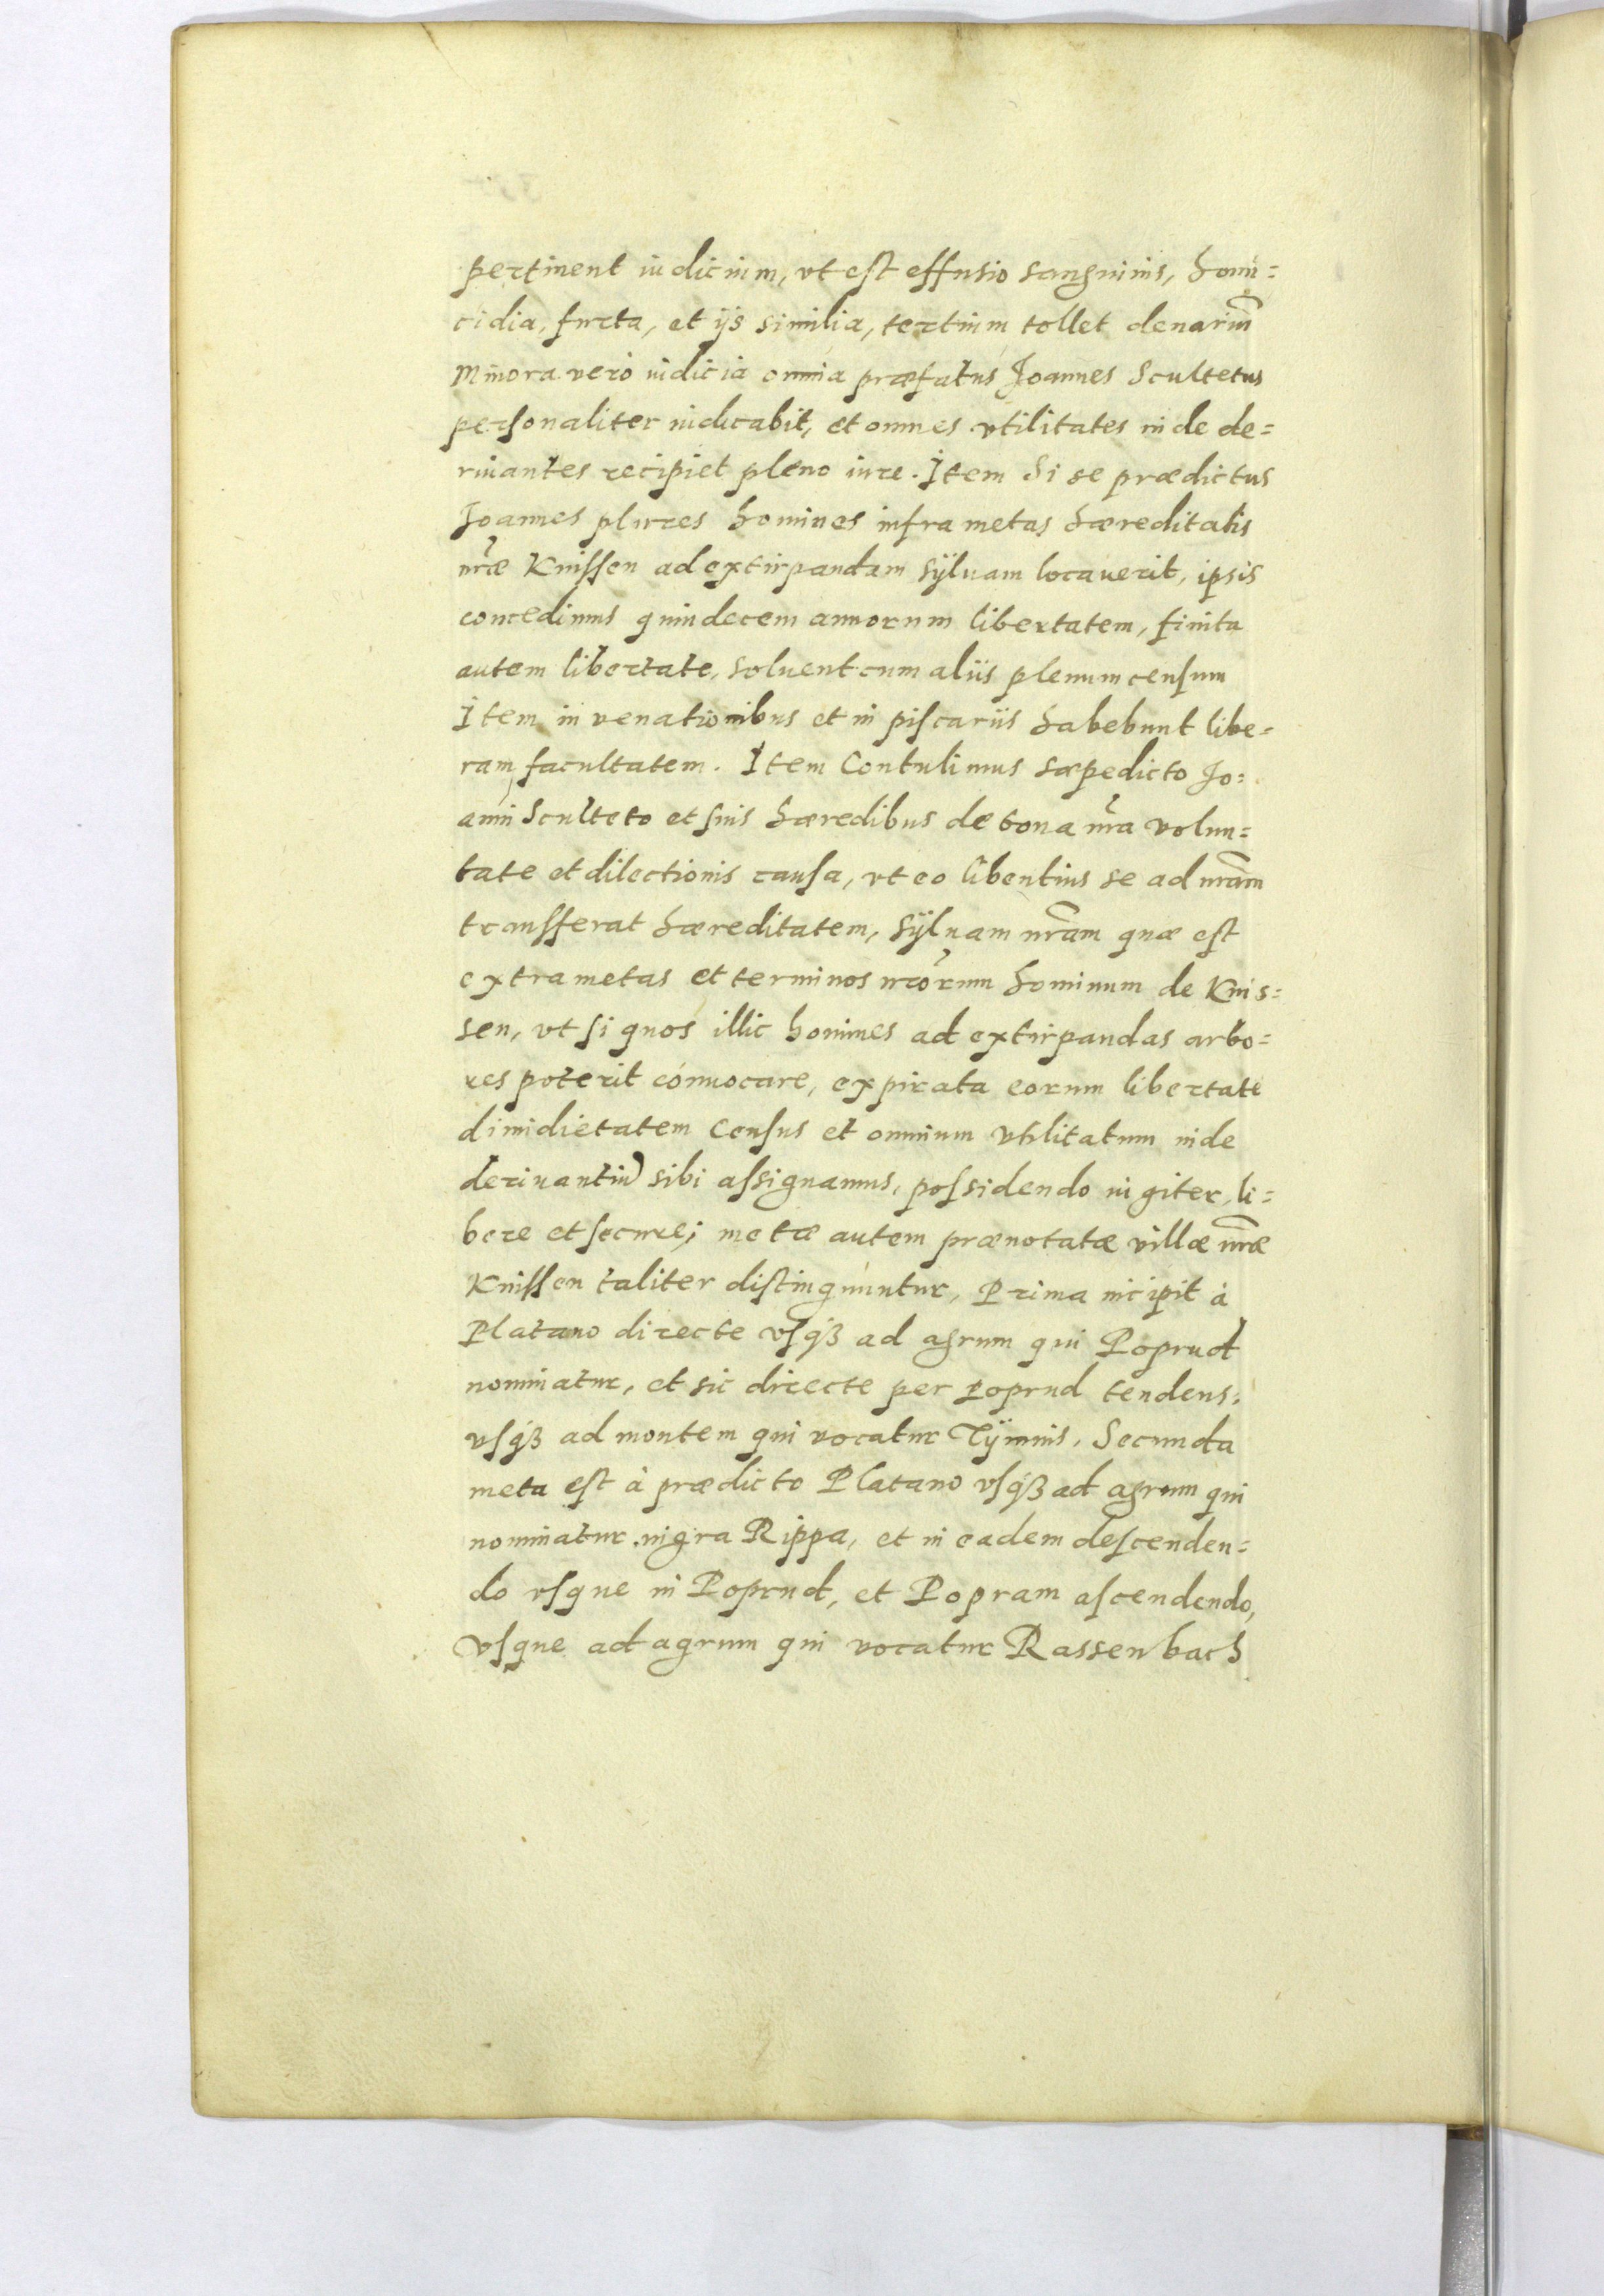 pertinent iudicium, vt est effusio sanguinis, homi=
cidia, furta, et ijs similia, tertium tollet denariũ
Minora vero iudicia omnia præfatus Joannes Scultetus
personaliter iudicabit, et omnes vtilitates inde de=
riuantes recipiet pleno iure. Item Si se prædictus
Joannes plures homines infra metas hæreditatis
nr̃æ Knissen ad extirpandam sÿluam locauerit, ipsis
concedimus quindecem annorum libertatem, finita
autem libertate, soluent cum aliis plenum censum
Item in venationibus et in piscariis habebunt libe=
ram facultatem. Item Contulimus sæpedicto Jo=
anni Sculteto et suis hæredibus de bona nr̃a volun=
tate et dilectionis causa, vt eo libentius se ad nr̃am
transferat hæreditatem, sÿluam nr̃am quæ est
extra metas et terminos nr̃orum hominum de Knis=
sen, vt si quos illic homines ad extirpandas arbo=
res poterit conuocare, expirata eorum libertate
dimidietatem Census et omnium vtilitatum inde
deriuantiũ sibi assignamus, possidendo iugiter, li=
bere et secure; metæ autem prænotatæ villæ nr̃æ
Knissen taliter distinguuntur, Prima incipit à
Platano directe vsqꝫ ad agrum qui Poprud
nominatur, et sic directe per Poprud tendens,
vsqꝫ ad montem qui vocatur Tÿmnis. Secunda
meta est à prædicto Platano vsqꝫ ad agrum qui
nominatur nigra Rippa, et in eadem descenden=
do vsque in Poprud, et Popram ascendendo,
vsque ad agrum qui vocatur Rassenbach